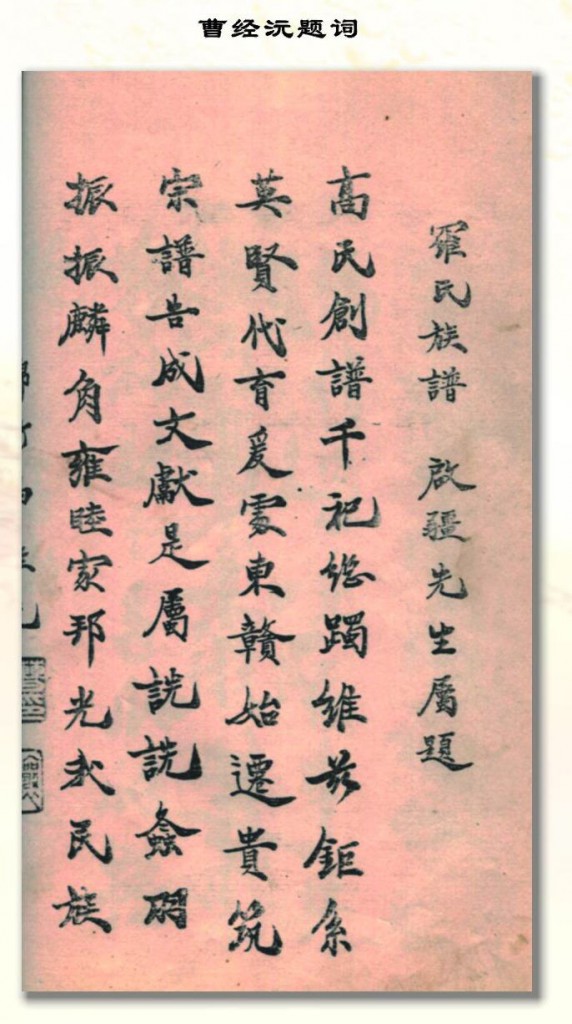 曹经沅题词
羅氏族譜 啟疆先生屬題
高民創譜千祀繼躅維茲鉅系
英賢代育爰處東贛始遷貴筑
宗譜告成文獻是屬詵詵螽羽
振振麟角雍睦家邦光我民族